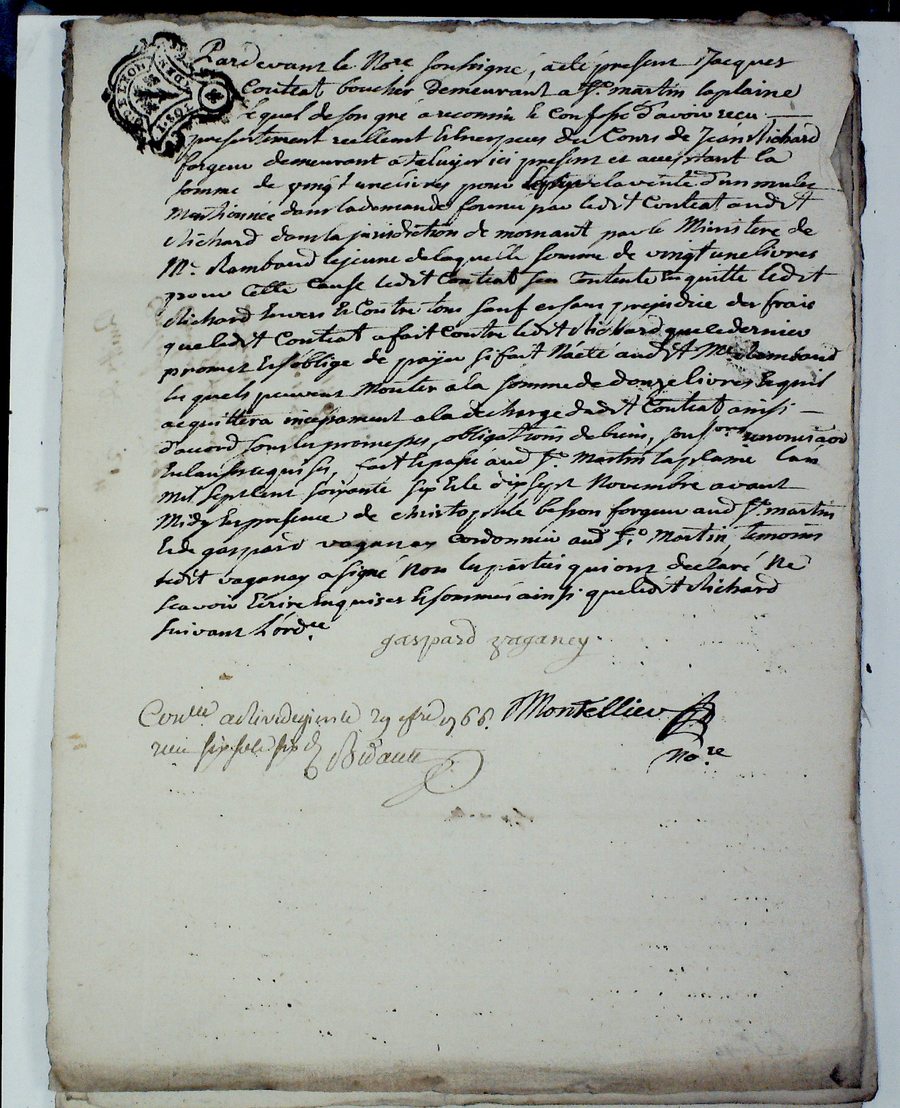 Pardevant le No.re soussigné, a été présent Jacques
Contrat boucher demeurant a St. martin laplaine
Lequel de son gré a reconnu et Confessé d'avoir reçu
presentement reellement et En especes du Cours de Jean Richard
forgeur demeurant a taluyer ici present et acceptant la
somme de vingt une livres pour la vente d'un mulet
Mentionnée dans la demande formée par ledit Contrat audit
Richard dans la jurisdiction de mornant par le Ministere de
Me. Rambaud le jeune de laquelle somme de vingt une livres
pour Telle Cause ledit Contrat sen Contente Enquitte ledit
Richard Envers Et Contre tous sauf et sans prejudice des frais
que ledit Contrat a fait Contre ledit Richard que ce dernier
promet Et soblige de payer si fait N'a été audit Me. Rambaud
les quels peuvent Monter a la somme de douze livres Et quil
acquittera incessament a la decharge dudit Contrat ainsi
d'accord sous les promesses, obligations de biens, soumons renonciaôns
Et clauses requises, fait Et passé aud. St. Martin laplaine Lan
Mil Sept Cent soixante six Et le dix sept Novembre avant
Midy En presence de christophle besson forgeur aud St. martin
Et de gaspard vaganay Cordonnier aud St. Martin, temoins
ledit vaganay a signé Non les parties qui ont déclaré Ne
scavoir Ecrire Enquises Et sommés ainsi que ledit Richard
suivant L'ord.ce
gaspard vaganey
Con.lé a Rivedegier le 29 9bre 1766.
reçu six sols six d
Montellier
No.re